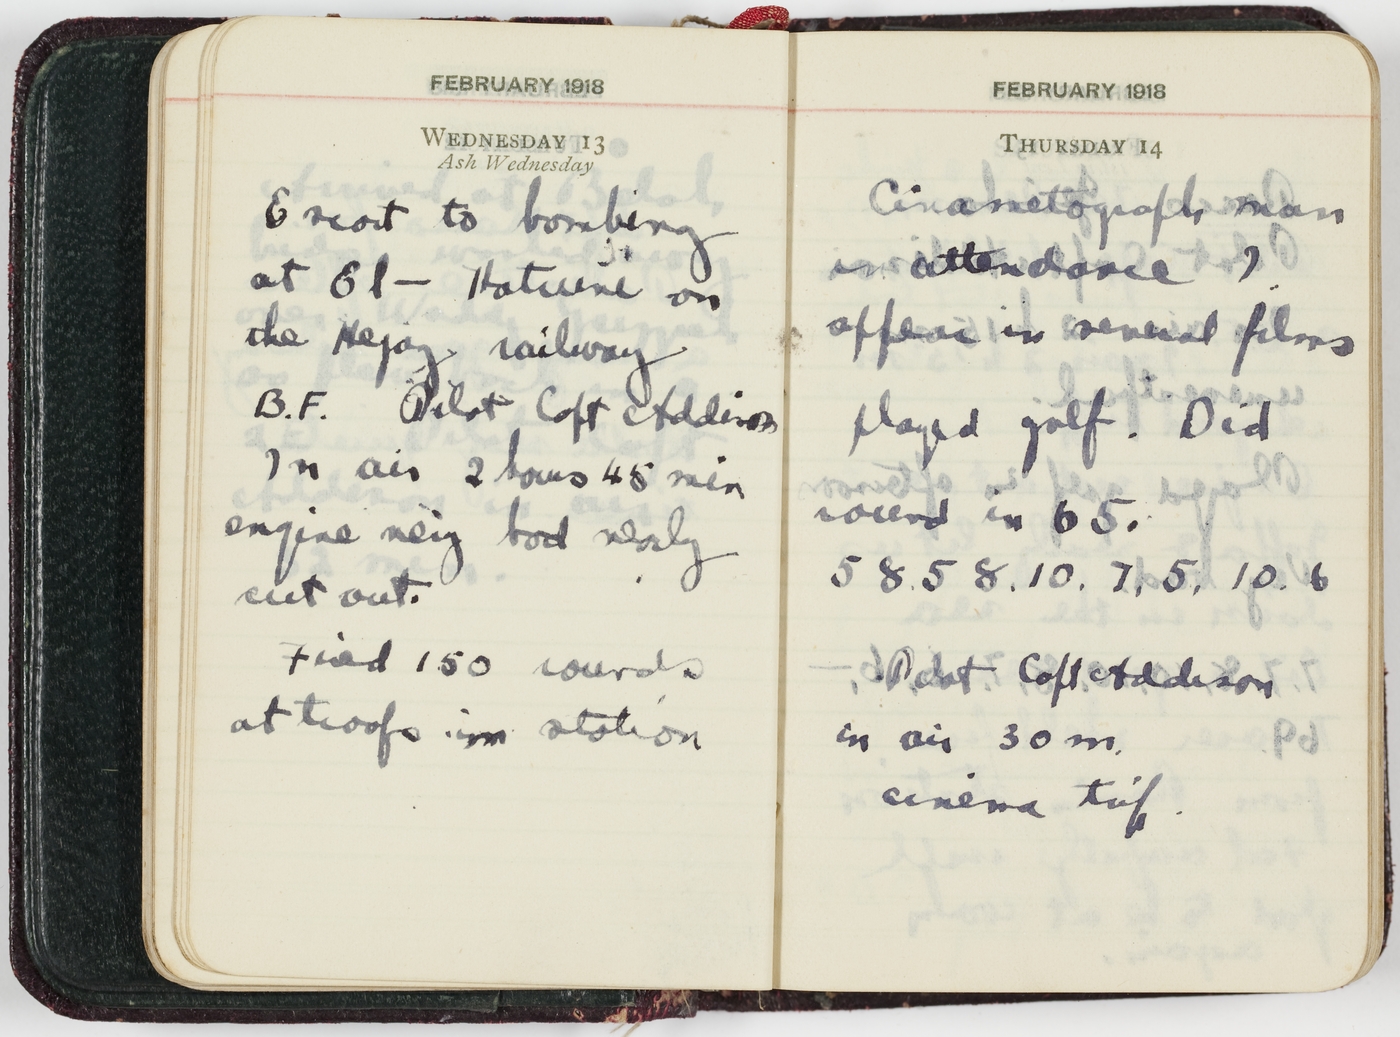 FEBRUARY 1918
WEDNESDAY 13
Ash Wednesday
Escort to bombing
at El - on
the Hejaz railway
B.F. Pilot Capt Addison
In air 2 hours 45 min
engine very bad nearly
cut out.
Fired 150 rounds
at troops in station
FEBRUARY 1918
THURSDAY 14
Cinametograph man
in attendance I
appear in several films
played golf. Did
round in 65.
5 8. 5 8. 10. 7, 5, 10. 6
Pilot Capt Addison
in air 30 m.
cinema trip.